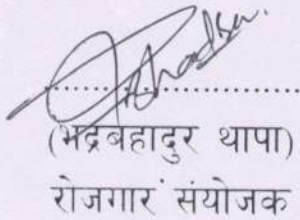 ....................
(भद्रबहादुर थापा)
रोजगार संयोजक